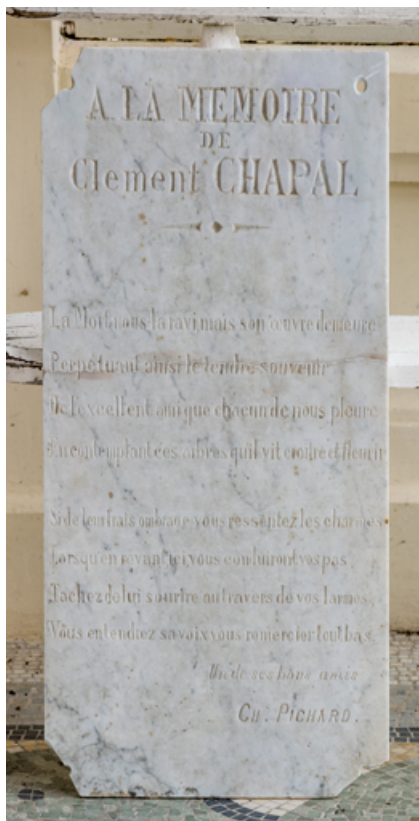 A LA MEMOIRE
DE
Clement CHAPAL
La Mort nous l'a ravi, mais son œuvre demeure
Perpétuant ainsi le tendre souvenir
De l'excellent ami que chacun de nous pleure
En contemplant ces arbres qu'il vit croître et fleurir
Si de leur frais ombrage vous ressentez les charmes
Lorsqu'en rêvant ici vous conduiront vos pas,
Tachez de lui sourire au travers de vos larmes,
Vous entendrez sa voix vous remercier tout bas.
Un de ses bons amis
CH. PICHARD.